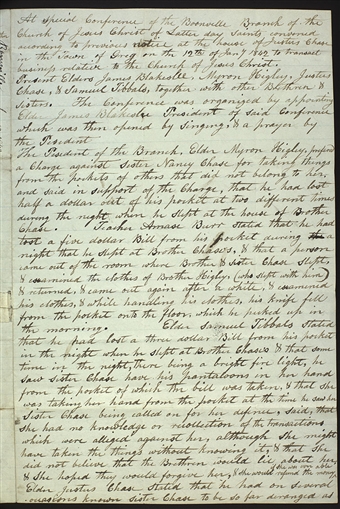 At Special Conference of the Boonville Branch of the
Church of Jesus Christ of Latter day Saints convened
according to previous notice at the house of Justus Chase
in the Town of Greig on the 12th of Jany 1842 to transact
business relative to the Church of Jesus Christ.
Present Elders James Blakeslee, Myron Higley, Justus
Chase, & Samuel Tibbals, together with other Brethren &
Sisters. The Conference was organized by appointing
Elder James Blakeslee President of said Conference
which was then opened by Singing, & a prayer by
the President
The President of the Branch, Elder Myron Higley, prefered
a Charge against Sister Nancy Chase for taking things
from the pockets of others that did not belong to her,
and said in support of the Charge, that he had lost
half a dollar out of his pocket at two different times
during the night when he slept at the house of Brother
Chase. Teacher Amase Burr stated that he had
lost a five dollar Bill from his pocket during the
night that he slept at Brother Chase's, & that a person
came out of the room where Brother & Sister Chase Slept,
& examined the clothes of Brother Higley (who slept with him)
& returned, & came out again after a while, & examined
his clothes, & while handling his clothes, his knife fell
from the pocket onto the floor, which he picked up in
the morning. Elder Samuel Tibbals stated
that he had lost a three dollar Bill from his pocket
in the night when he slept at Brother Chase's & that some
time in the night, there being a bright fire light, he
saw Sister Chase have his pantaloons in her hand
from the pocket of which the bill was taken, & that she
was taking her hand from the pocket at the time he saw her
Sister Chase being called on for her defence, said, that
she had no knowledge or recollection of the transactions
which were alleged against her, although she might
have taken the things without knowing it, & that she
did not believe that the Brethren would lie about her
& She hoped they would forgive her, & she would refund the money
if she was able
Elder Justus Chase Stated that he had on several
occasions known Sister Chase to be so far deranged as